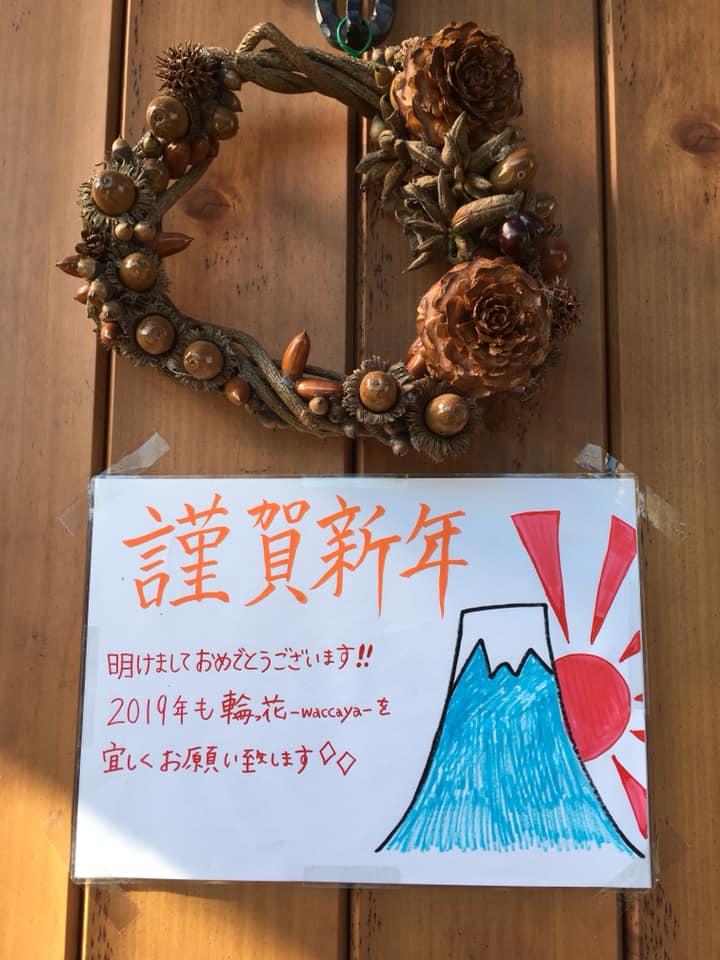 謹賀新年
明けましておめでとうございます!!
2019年も輪っ花-waccaya-を
宜しくお願い致します◇◇